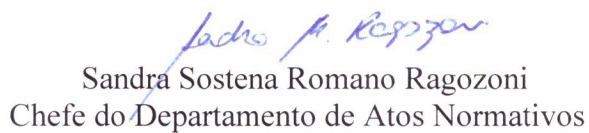 Sandra Sostena Romano Ragozoni
Chefe do Departamento de Atos Normativos